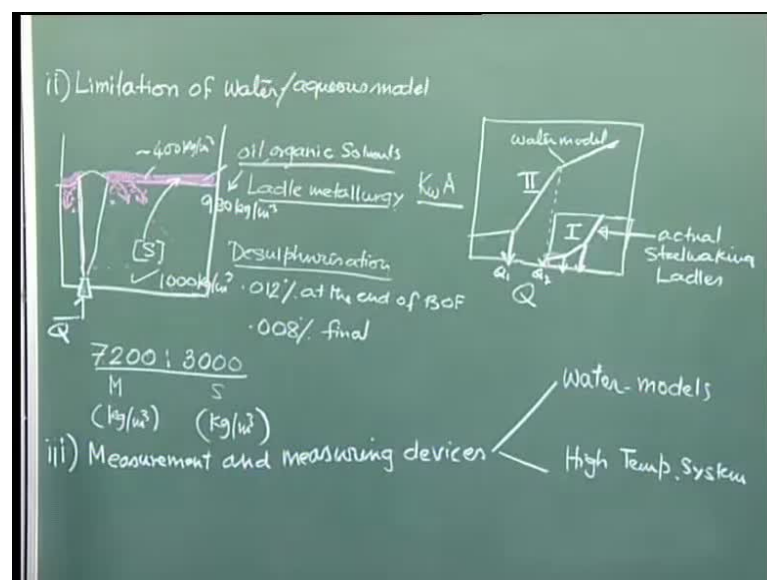 ii) Limitation of water/aqueous model
~400 kg/m³
oil, organic Solvents
Ladle metallurgy
980 kg/m³
KwA
[S]
1000 kg/m³
Desulphurisation
.012% at the end of BOF
.008% final
Q
7200 : 3000
M S
(kg/m³) (kg/m³)
water model
II
I
actual
Steelmaking
Ladles
Q₁ Q₂
Q
iii) Measurement and measuring devices
Water-models
High Temp. System